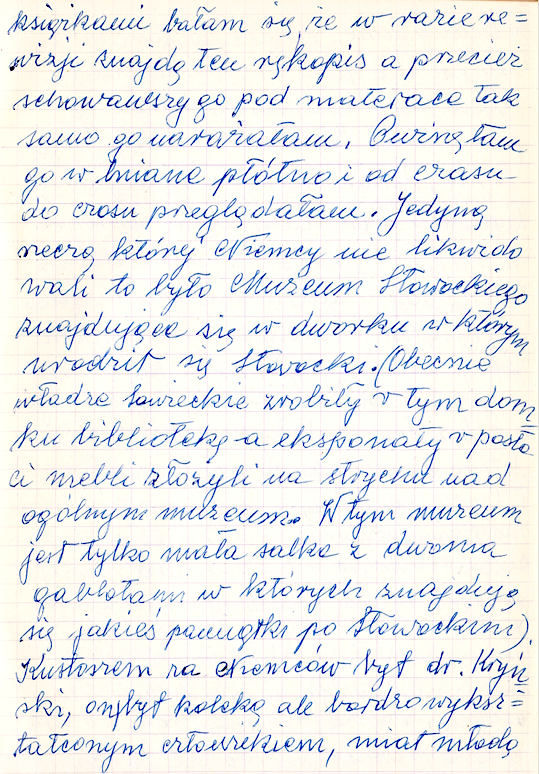 książkami bałam się że w razie re=
wizji znajdą ten rękopis a przecież
schowawszy go pod materace tak
samo go narażałam. Owinęłam
go w lniane płótno i od czasu
do czasu przeglądałam. Jedyną
rzeczą której Niemcy nie likwido
wali to było Muzeum Słowackiego
znajdujące się w dworku w którym
urodził się Słowacki. (Obecnie
władze sowieckie zrobiły w tym dom=
ku bibliotekę - a eksponaty w posta
ci mebli złożyli na strychu nad
ogólnym muzeum. W tym muzeum
jest tylko mała salka z dwoma
gablotami w których znajdują
się jakieś pamiątki po Słowackim).
Kustoszem za Niemców był dr. Kryń=
ski, on był kaleką ale bardzo wyksz=
tałconym człowiekiem, miał młodą